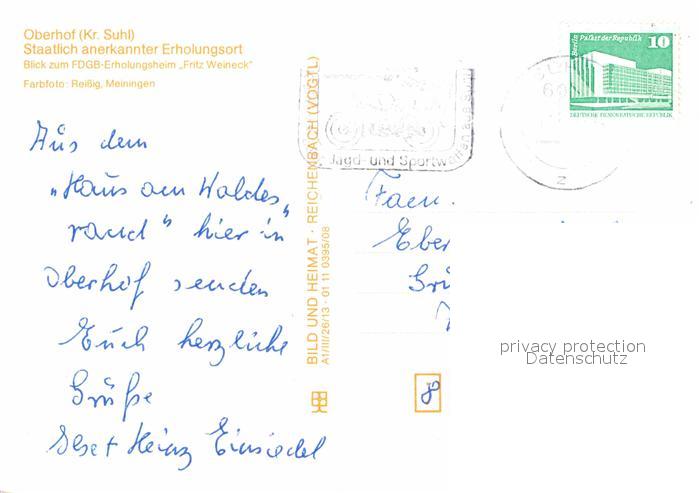 Oberhof (Kr. Suhl)
Staatlich anerkannter Erholungsort
Blick zum FDGB-Erholungsheim „Fritz Weineck“
Farbfoto: Reißig, Meiningen
Aus dem
„Haus am Waldes
rand“ hier in
Oberhof senden
Euch herzliche
Grüße
Heinz Einsiedel
BILD UND HEIMAT · REICHENBACH (VOGTL)
A1/III/26/13 · 01 11 0395/08
Jagd- und Sportwaffen aus Suhl
Berlin Palast der Republik
10
DEUTSCHE DEMOKRATISCHE REPUBLIK
z
Fam.
Eber
8
privacy protection
Datenschutz